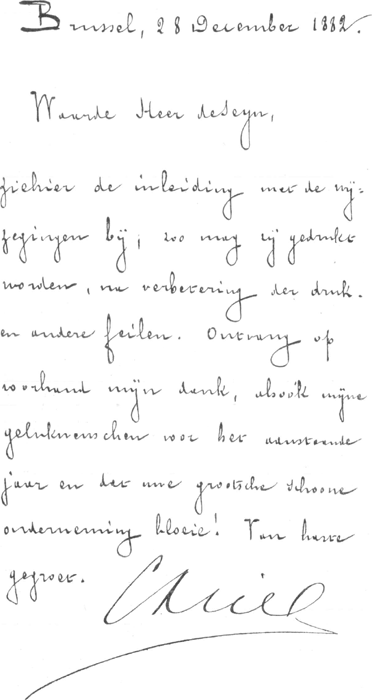 Brussel, 28 December 1882.
Waarde Heer deSeyn,
ziehier de inleiding met de wij=
zigingen bij; zoo mag zij gedrukt
worden, na verbetering der druk-
en andere feilen. Ontvang op
voorhand mijn dank, alsook mijne
gelukwenschen voor het aanstaande
jaar en dat uwe grootsche schoone
onderneming bloeie! Van harte
gegroet.